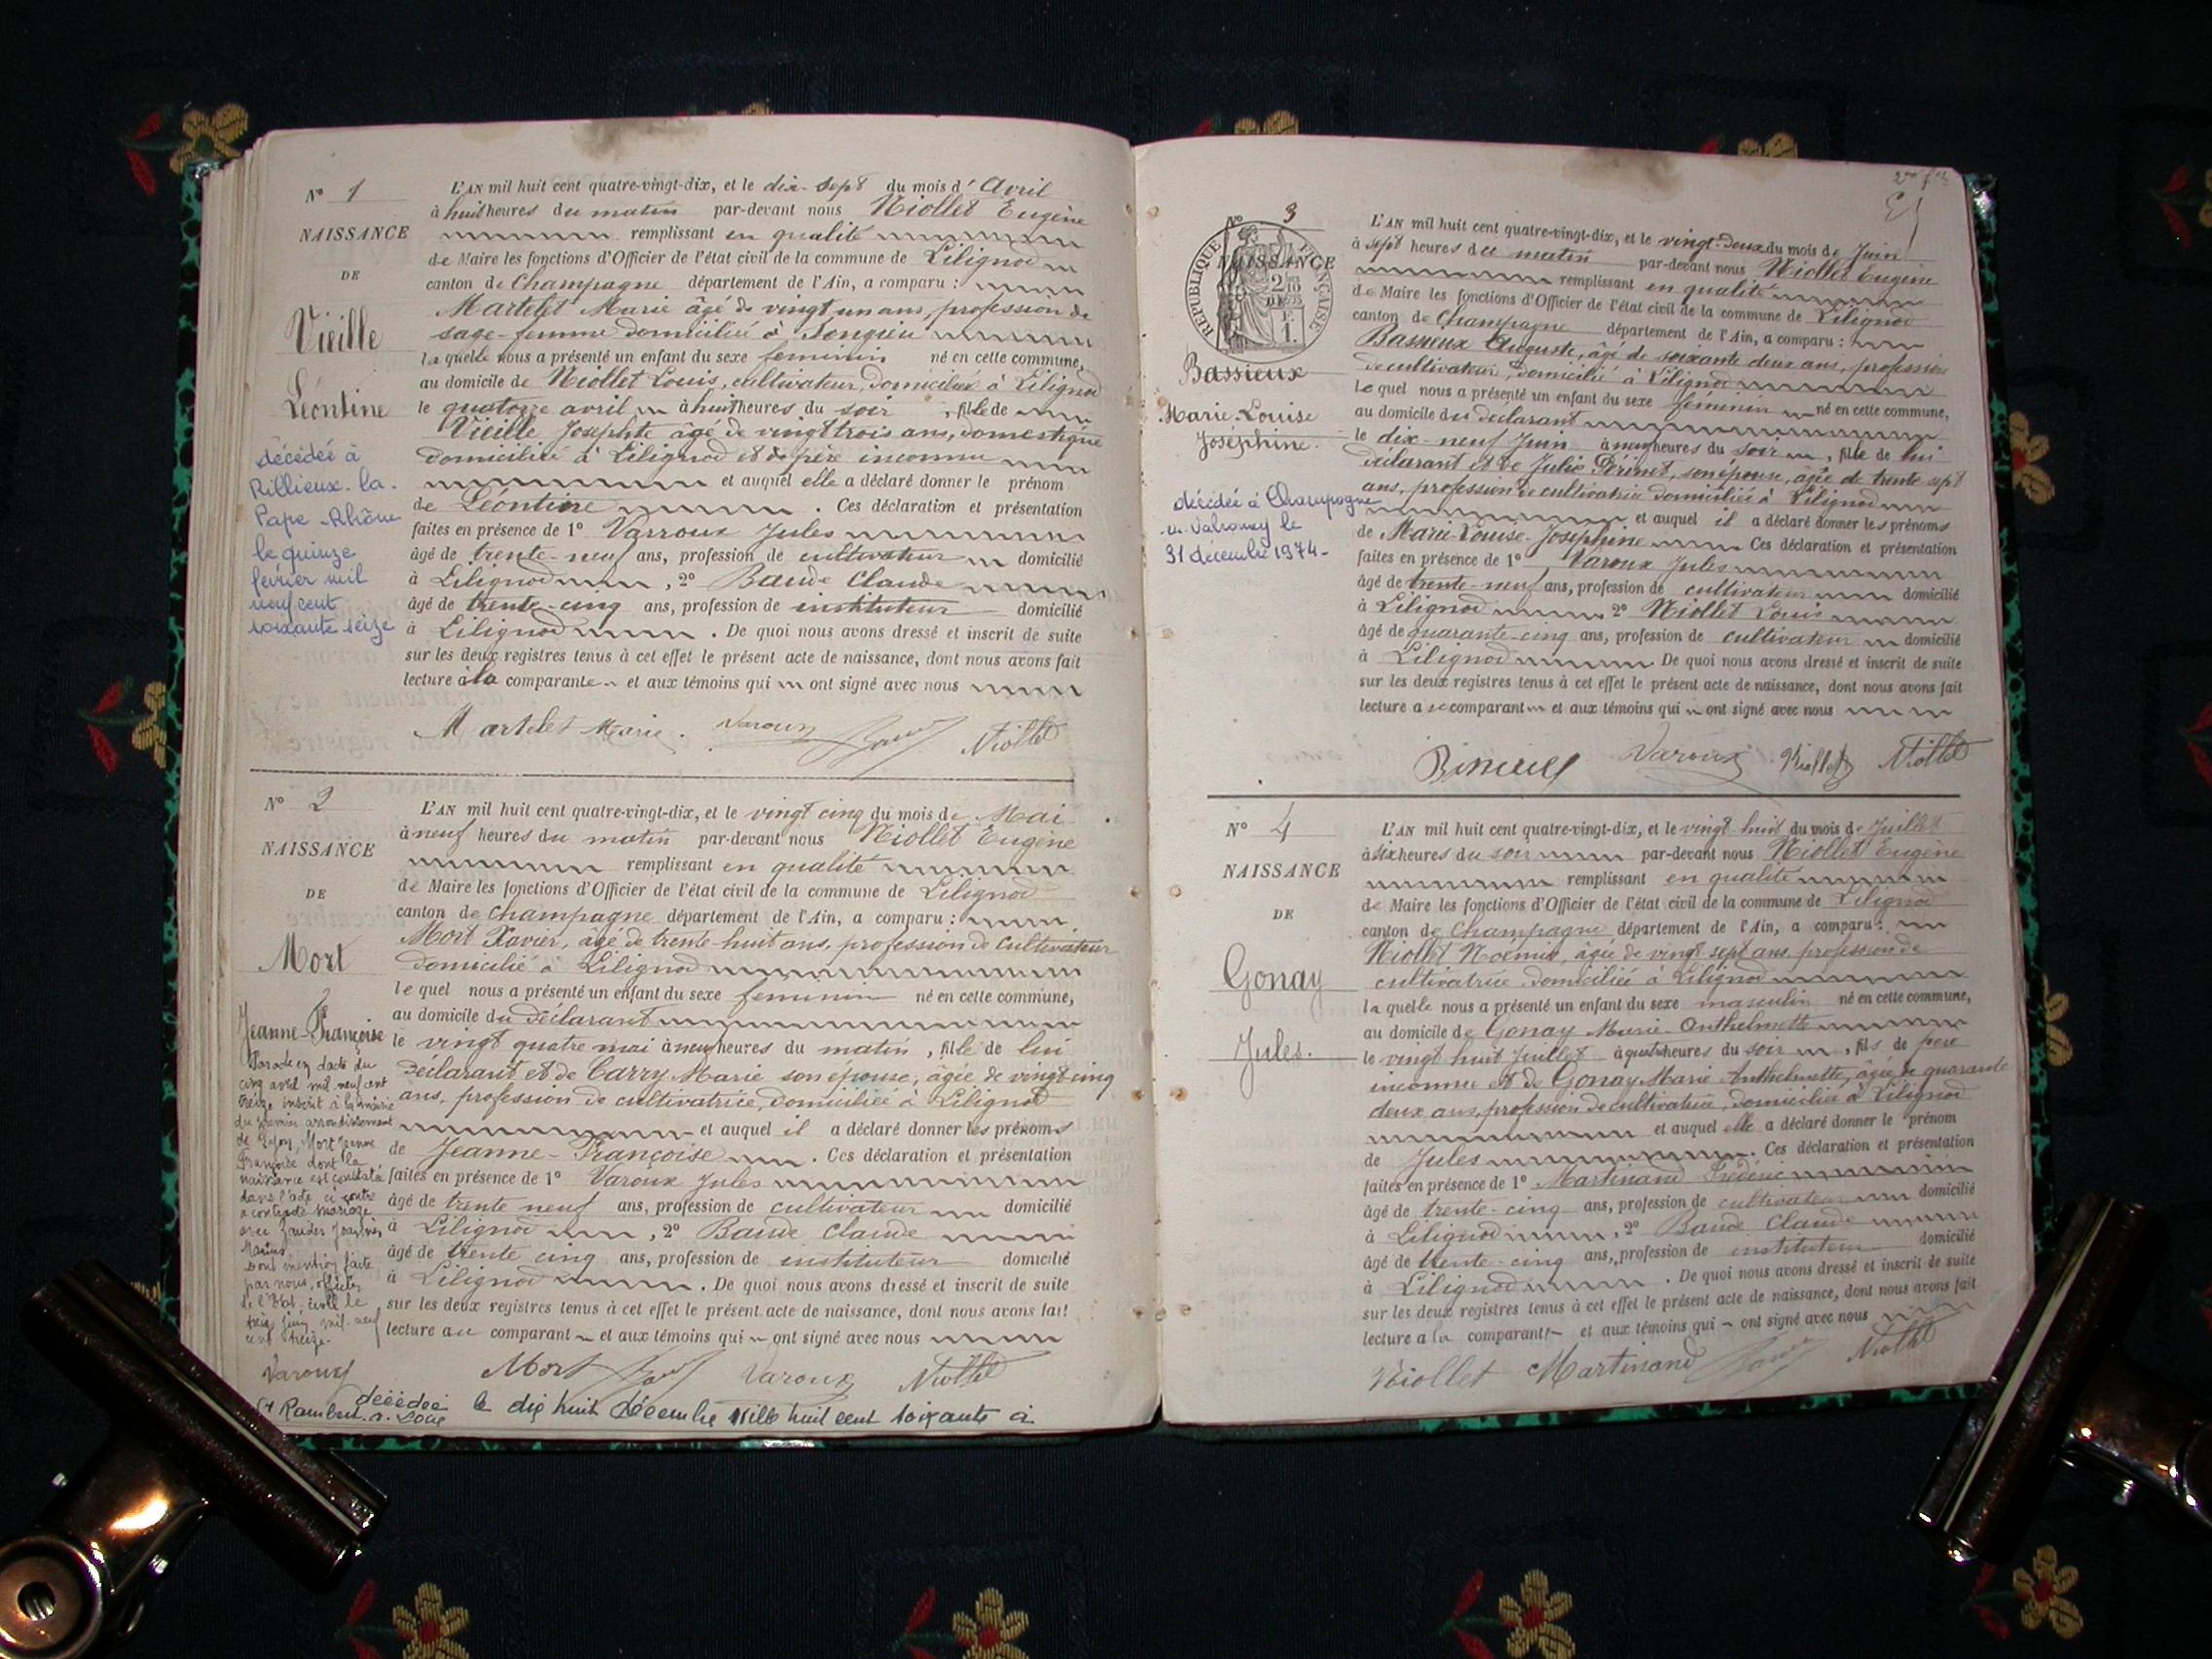 N° 1
NAISSANCE
DE
Vieille
Léontine
décédée à
Rillieux-la-
Pape-Rhône
le quinze
février mil
neuf cent
soixante seize
L'AN mil huit cent quatre-vingt-dix, et le dix-sept du mois d'Avril
à huit heures du matin par-devant nous Niollet Eugène
remplissant en qualité
de Maire les fonctions d'Officier de l'état civil de la commune de Lilignod
canton de Champagne département de l'Ain, a comparu :
Martelet Marie âgé de vingt un ans, profession de
sage-femme domiciliée à Songieu
laquelle nous a présenté un enfant du sexe feminin né en cette commune,
au domicile de Niollet Louis, cultivateur, domicilié à Lilignod
le quatorze avril à huit heures du soir, fille de
Vieille Josephte âgé de vingt trois ans, domestique
domiciliée à Lilignod et de père inconnu
et auquel elle a déclaré donner le prénom
de Léontine . Ces déclaration et présentation
faites en présence de 1° Varroux Jules
âgé de trente-neuf ans, profession de cultivateur domicilié
à Lilignod , 2° Baude Claude
âgé de trente-cinq ans, profession de instituteur domicilié
à Lilignod . De quoi nous avons dressé et inscrit de suite
sur les deux registres tenus à cet effet le présent acte de naissance, dont nous avons fait
lecture à la comparante et aux témoins qui ont signé avec nous
Martelet Marie. Varoux Niollet
N° 2
NAISSANCE
DE
Mort
Jeanne-Françoise
Par acte en date du
cinq avril mil neuf cent
treize inscrit à la mairie
du premier arrondissement
de Lyon, Mort Jeanne
Françoise dont la
naissance est constatée
dans l'acte ci contre
a contracté mariage
avec
Marius.
Dont mention faite
par nous, officier
de l'Etat civil le
treize juin mil neuf
cent treize.
Varoux
L'AN mil huit cent quatre-vingt-dix, et le vingt cinq du mois de Mai
à neuf heures du matin par-devant nous Niollet Eugène
remplissant en qualité
de Maire les fonctions d'Officier de l'état civil de la commune de Lilignod
canton de Champagne département de l'Ain, a comparu :
Mort Xavier, âgé de trente-huit ans, profession de cultivateur
domicilié à Lilignod
lequel nous a présenté un enfant du sexe feminin né en cette commune,
au domicile du déclarant
le vingt quatre mai à neuf heures du matin, fille de lui
déclarant et de Carry Marie son epouse, âgée de vingt-cinq
ans, profession de cultivatrice, domiciliée à Lilignod
et auquel il a déclaré donner les prénoms
de Jeanne-Françoise . Ces déclaration et présentation
faites en présence de 1° Varoux Jules
âgé de trente neuf ans, profession de cultivateur domicilié
à Lilignod , 2° Baude Claude
âgé de trente cinq ans, profession de instituteur domicilié
à Lilignod . De quoi nous avons dressé et inscrit de suite
sur les deux registres tenus à cet effet le présent acte de naissance, dont nous avons fait
lecture au comparant et aux témoins qui ont signé avec nous
Mort Varoux Niollet
décédée le dix huit décembre mille huit cent soixante à
St Rambert
N° 3
RÉPUBLIQUE FRANÇAISE
NAISSANCE
DE
Bassieux
Marie-Louise
Joséphine.
décédée à Champagne
-en-Valromey le
31 décembre 1974-
L'AN mil huit cent quatre-vingt-dix, et le vingt-deux du mois de Juin
à sept heures du matin par-devant nous Niollet Eugène
remplissant en qualité
de Maire les fonctions d'Officier de l'état civil de la commune de Lilignod
canton de Champagne département de l'Ain, a comparu :
Bassieux Auguste, âgé de soixante deux ans, profession
de cultivateur, domicilié à Lilignod
lequel nous a présenté un enfant du sexe féminin né en cette commune,
au domicile du declarant
le dix-neuf Juin à neuf heures du soir, fille de lui
déclarant et de Julie Périnet, son épouse, âgée de trente sept
ans, profession de cultivatrice domiciliée à Lilignod
et auquel il a déclaré donner les prénoms
de Marie-Louise-Joséphine . Ces déclaration et présentation
faites en présence de 1° Varoux Jules
âgé de trente-neuf ans, profession de cultivateur domicilié
à Lilignod 2° Niollet Louis
âgé de quarante-cinq ans, profession de cultivateur domicilié
à Lilignod De quoi nous avons dressé et inscrit de suite
sur les deux registres tenus à cet effet le présent acte de naissance, dont nous avons fait
lecture a ce comparant et aux témoins qui ont signé avec nous
Varoux Niollet Niollet
N° 4
NAISSANCE
DE
Gonay
Jules.
L'AN mil huit cent quatre-vingt-dix, et le vingt-huit du mois de Juillet
à six heures du soir par-devant nous Niollet Eugène
remplissant en qualité
de Maire les fonctions d'Officier de l'état civil de la commune de Lilignod
canton de Champagne département de l'Ain, a comparu :
Niollet Noémie, âgée de vingt sept ans profession de
cultivatrice domiciliée à Lilignod
laquelle nous a présenté un enfant du sexe masculin né en cette commune,
au domicile de Gonay Marie-Anthelmette
le vingt huit Juillet à quatre heures du soir, fils de père
inconnu et de Gonay Marie Anthelmette, âgée de quarante
deux ans, profession de cultivatrice, domiciliée à Lilignod
et auquel elle a déclaré donner le prénom
de Jules . Ces déclaration et présentation
faites en présence de 1° Martinand Frédéric
âgé de trente-cinq ans, profession de cultivateur domicilié
à Lilignod , 2° Baude Claude
âgé de trente-cinq ans, profession de instituteur domicilié
à Lilignod . De quoi nous avons dressé et inscrit de suite
sur les deux registres tenus à cet effet le présent acte de naissance, dont nous avons fait
lecture a la comparante et aux témoins qui ont signé avec nous
Niollet Martinand Niollet